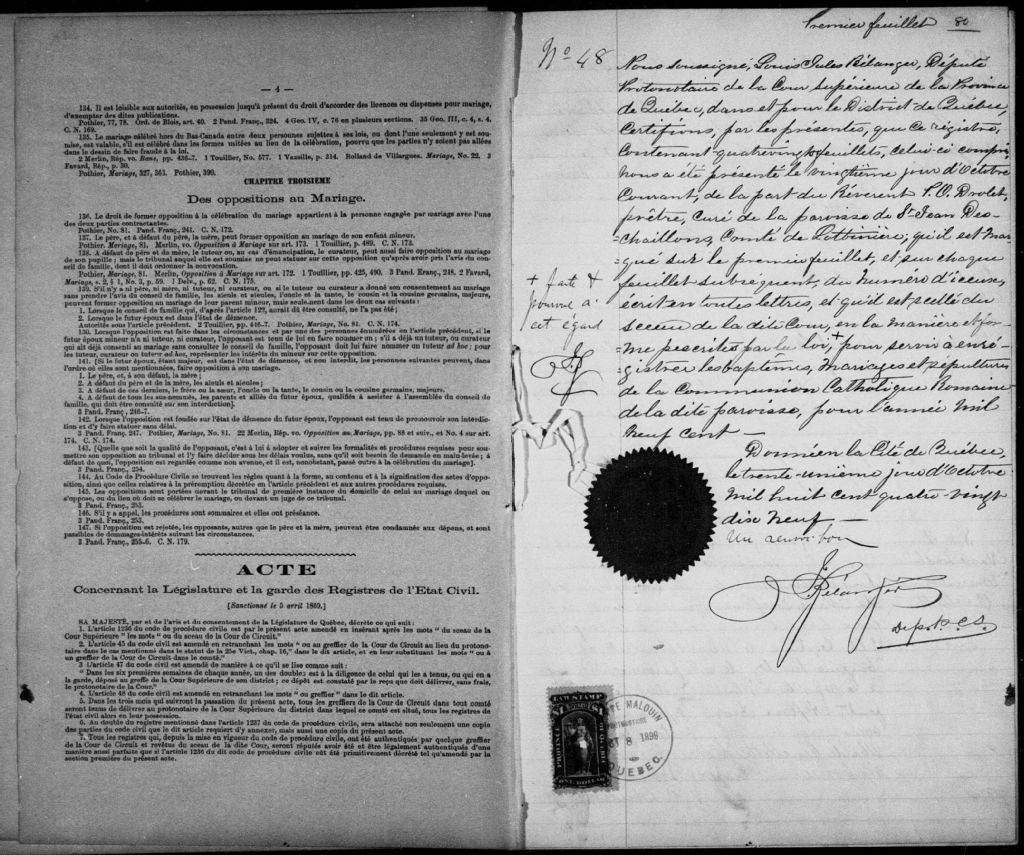 — 4 —
134. Il est loisible aux autorités, en possession jusqu'à présent du droit d'accorder des licences ou dispenses pour mariage,
d'exempter des dites publications.
Pothier, 77, 78. Ord. de Blois, art. 40. 2 Pand. Franç., 324. 4 Geo. IV, c. 76 en plusieurs sections. 35 Geo. III, c. 4, s. 4.
C. N. 169.
135. Le mariage célébré hors du Bas-Canada entre deux personnes sujettes à ses lois, ou dont l'une seulement y est sou-
mise, est valable, s'il est célébré dans les formes usitées au lieu de la célébration, pourvu que les parties n'y soient pas allées
dans le dessin de faire fraude à la loi.
2 Merlin, Rép. vo. Bans, pp. 436-7. 1 Touillier, No. 577. 1 Vazeille, p. 314. Rolland de Villargues, Mariage, No. 22. 3
Favard, Rép., p. 30.
Pothier, Mariage, 327, 363. Pothier, 390.
CHAPITRE TROISIEME
Des oppositions au Mariage.
136. Le droit de former opposition à la célébration du mariage appartient à la personne engagée par mariage avec l'une
des deux parties contractantes.
Pothier, No. 81. Pand. Franç., 241. C. N. 172.
137. Le père, et à défaut du père, la mère, peut former opposition au mariage de son enfant mineur.
Pothier, Mariage, 81. Merlin, vo. Opposition à Mariage sur art. 173. 1 Touillier, p. 489. C. N. 173.
138. A défaut de père et de mère, le tuteur ou, au cas d'émancipation, le curateur, peut aussi faire opposition au mariage
de son pupille; mais le tribunal auquel elle est soumise ne peut statuer sur cette opposition qu'après avoir pris l'avis du con-
seil de famille, dont il doit ordonner la convocation.
Pothier, Mariage, 81. Merlin, Opposition à Mariage sur art. 172. 1 Touillier, pp. 425, 490. 3 Pand. Franç., 248. 2 Favard,
Mariage, s. 2, § 1, No. 3, p. 59. 1 Delv., p. 62. C. N. 175.
139. S'il n'y a ni père, ni mère, ni tuteur, ni curateur, ou si le tuteur ou curateur a donné son consentement au mariage
sans prendre l'avis du conseil de famille, les aïeuls et aïeules, l'oncle et la tante, le cousin et la cousine germains, majeurs,
peuvent former opposition au mariage de leur parent mineur, mais seulement dans les deux cas suivants:
1. Lorsque le conseil de famille qui, d'après l'article 122, aurait dû être consulté, ne l'a pas été;
2. Lorsque le futur époux est dans l'état de démence.
Autorités sous l'article précédent. 2 Touillier, pp. 416-7. Pothier, Mariage, No. 81. C. N. 174.
130. Lorsque l'opposition est faite dans les circonstances et par une des personnes énumérées en l'article précédent, si le
futur époux mineur n'a ni tuteur, ni curateur, l'opposant est tenu de lui en faire nommer un; s'il a déjà un tuteur, ou curateur
qui ait déjà consenti au mariage sans consulter le conseil de famille, l'opposant doit lui faire nommer un tuteur ad hoc; pour
les tuteur, curateur ou tuteur ad hoc, représenter les intérêts du mineur sur cette opposition.
141. [Si le futur époux, étant majeur, est dans l'état de démence, et non interdit, les personnes suivantes peuvent, dans
l'ordre où elles sont mentionnées, faire opposition à son mariage.
1. Le père, et, à son défaut, la mère;
2. A défaut du père et de la mère, les aïeuls et aïeules;
3. A défaut de ces derniers, le frère ou la sœur, l'oncle ou la tante, le cousin ou la cousine germains, majeurs.
4. A défaut de tous les sus-nommés, les parents et alliés du futur époux, qualifiés à assister à l'assemblée du conseil de
famille, qui doit être consulté sur son interdiction].
3 Pand. Franç., 246-7.
142. Lorsque l'opposition est fondée sur l'état de démence du futur époux, l'opposant est tenu de promouvoir son interdiction
et d'y faire statuer sans délai.
3 Pand. Franç. 247. Pothier, Mariage, No. 81. 22 Merlin, Rép. vo. Opposition au Mariage, pp. 88 et suiv., et No. 4 sur art.
174. C. N. 174.
143. [Quelle que soit la qualité de l'opposant, c'est à lui à adopter et suivre les formalités et procédures requises pour sou-
mettre son opposition au tribunal et l'y faire décider sous les délais voulus, sans qu'il soit besoin de demande en main-levée; à
défaut de quoi, l'opposition est regardée comme non avenue, et il est, nonobstant, passé outre à la célébration du mariage].
3 Pand. Franç., 254.
144. Au Code de Procédure Civile se trouvent les règles quant à la forme, au contenu et à la signification des actes d'oppo-
sition, ainsi que celles relatives à la péremption décrétée en l'article précédent et aux autres procédures requises.
145. Les oppositions sont portées devant le tribunal de première instance du domicile de celui au mariage duquel on
s'oppose, ou du lieu où doit se célébrer le mariage, ou devant un juge de ce tribunal.
3 Pand. Franç., 253.
146. S'il y a appel, les procédures sont sommaires et elles ont préséance.
3 Pand. Franç., 253.
147. Si l'opposition est rejetée, les opposants, autres que le père et la mère, peuvent être condamnés aux dépens, et sont
passibles de dommages-intérêts suivant les circonstances.
3 Pand. Franç., 255-6. C. N. 179.
ACTE
Concernant la Législature et la garde des Registres de l'Etat Civil.
[Sanctionné le 5 avril 1869.]
SA MAJESTÉ, par et de l'avis et du consentement de la Législature de Québec, décrète ce qui suit:
1. L'article 1236 du code de procédure civile est par le présent acte amendé en insérant après les mots "du sceau de la
Cour Supérieure" les mots "ou du sceau de la Cour de Circuit."
2. L'article 45 du code civil est amendé en retranchant les mots "ou au greffier de la Cour de Circuit au lieu du protono-
taire dans le cas mentionné dans le statut de la 25e Vict., chap. 16," dans le dit article, et en leur substituant les mots "ou à
un greffier de la Cour de Circuit dans le comté."
3 L'article 47 du code civil est amendé de manière à ce qu'il se lise comme suit:
"Dans les six premières semaines de chaque année, un des doubles est à la diligence de celui qui les a tenus, ou qui en a
la garde, déposé au greffe de la Cour Supérieure de son district; ce dépôt est constaté par le reçu que doit délivrer, sans frais,
le protonotaire de la Cour."
4. L'article 48 du code civil est amendé en retranchant les mots "ou greffier" dans le dit article.
5. Dans les trois mois qui suivront la passation du présent acte, tous les greffiers de la Cour de Circuit dans tout comté
seront tenus de délivrer au protonotaire de la Cour Supérieure du district dans lequel ce comté est situé, tous les registres de
l'état civil alors en leur possession.
6. Au double du registre mentionné dans l'article 1237 du code de procédure civile, sera attaché non seulement une copie
des parties du code civil que le dit article requiert d'y annexer, mais aussi une copie du présent acte.
7. Tous les registres qui, depuis la mise en vigueur du code de procédure civile, ont été authentiqués par quelque greffier
de la Cour de Circuit et revêtus du sceau de la dite Cour, seront réputés avoir été et être légalement authentiqués d'une
manière aussi parfaite que si l'article 1236 du dit code de procédure civile eût été primitivement décrété tel qu'amendé par la
section première du présent acte.
Premier feuillet 80
No 48
Nous soussigné, Louis Jules Bélanger, Député
Protonotaire de la Cour Supérieure de la Province
de Québec, dans et pour le District de Québec,
Certifions, par les présentes, que Ce régistre,
Contenant quatrevingt feuillets, celui-ci compris
nous a été présenté le vingtième jour d'Octobre
Courant, de la part du Révérent P.O. Drolet,
prêtre, curé de la paroisse de St Jean Des-
=chaillons, Comté de Lotbinière, qu'il est mar-
=qué sur le premier feuillet, et sur chaque
feuillet subséquent, du numéro d'iceux,
écrit en toutes lettres, et qu'il est scellé du
sceau de la dite Cour, en la manière et for-
=me pescrites par la loi,+ pour servir à enré-
=gistrer les baptêmes, mariages et sépultures
de la Communion Catholique Romaine
de la dite paroisse, pour l'année mil
neuf cent —
+ faite &
pourvue à
cet égard
Donné en la Cité de Québec,
le trente-unième jour d'Octobre
mil huit cent quatre-vingt
dix neuf —
Un renvoi bon
LJBélanger
Dep. P. C. S.
LAW STAMP
PROVINCE
ONE DOLLAR
PE MALOUIN
CT 8 1898
QUEBEC.